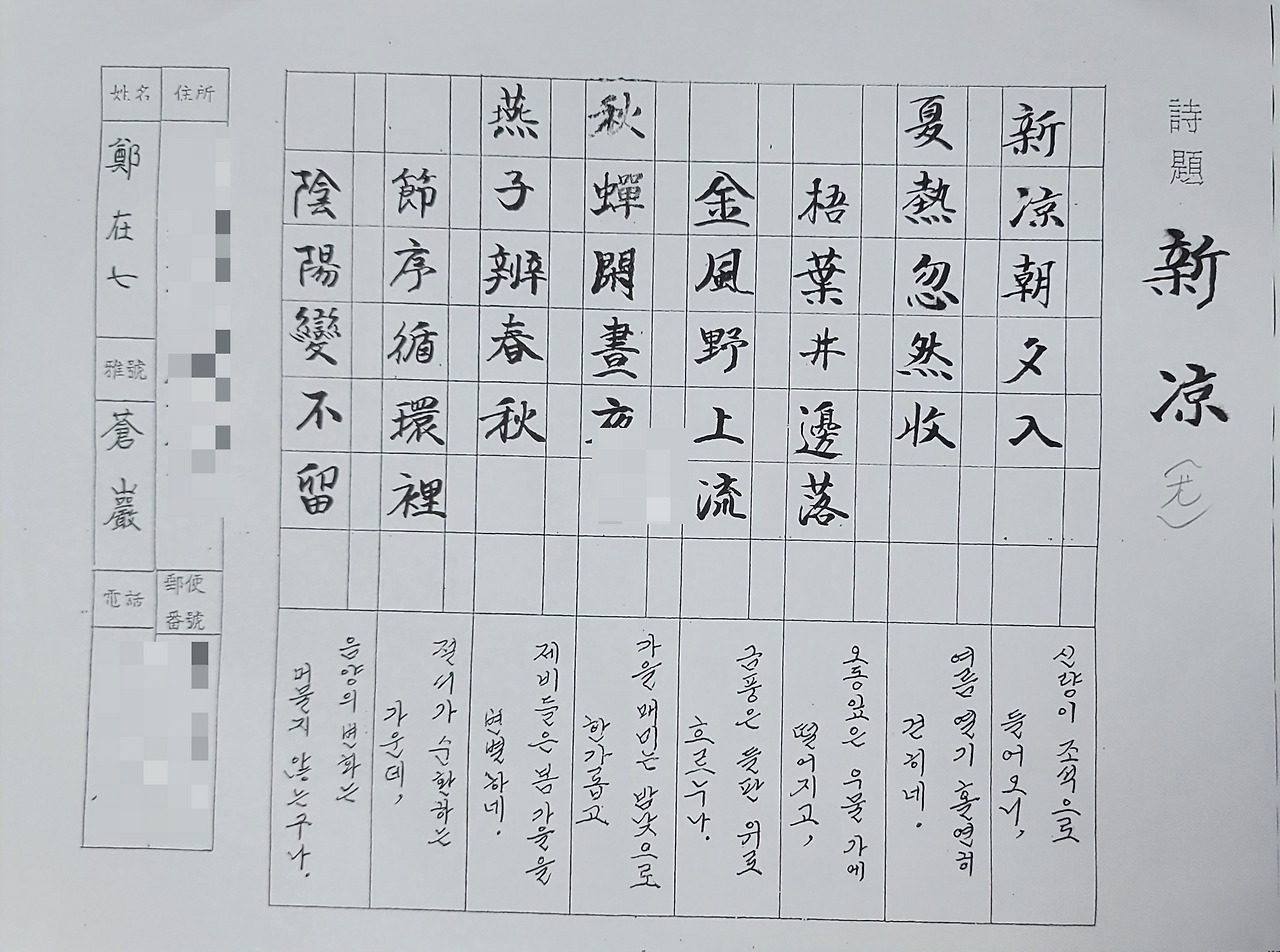 詩題 新凉 (尤)
新凉朝夕入
夏熱忽然收
梧葉井邊落
金風野上流
秋蟬閑晝
燕子辨春秋
節序循環裡
陰陽變不留
신량이 조석으로
들어오니,
여름 열기 홀연히
걷히네.
오동잎은 우물 가에
떨어지고,
금풍은 들판 위로
흐르누나.
가을 매미는 밤낮으로
한가롭고
제비들은 봄 가을을
변별하네.
절서가 순환하는
가운데,
음양의 변화는
머물지 않는구나.
住所
郵便番號
姓名 鄭在七
雅號 蒼巖
電話